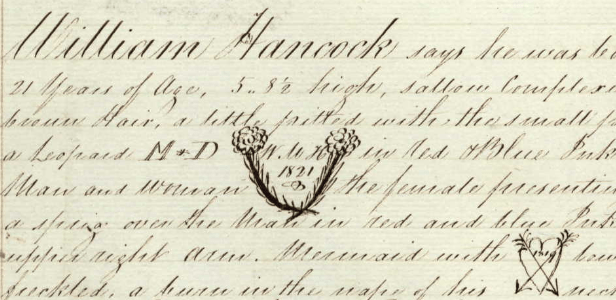 William Hancock says he was bo
21 Years of Age, 5.. 8½ high, sallow Complexi
brown Hair, a little pitted with the small p
a Leopard M*D W. M H in red & Blue Ink
1821
Man and Woman the female presenti
a sprig over the Man in red and blue Ink
upper right arm. Mermaid with
freckled, a burn in the nape of his neck